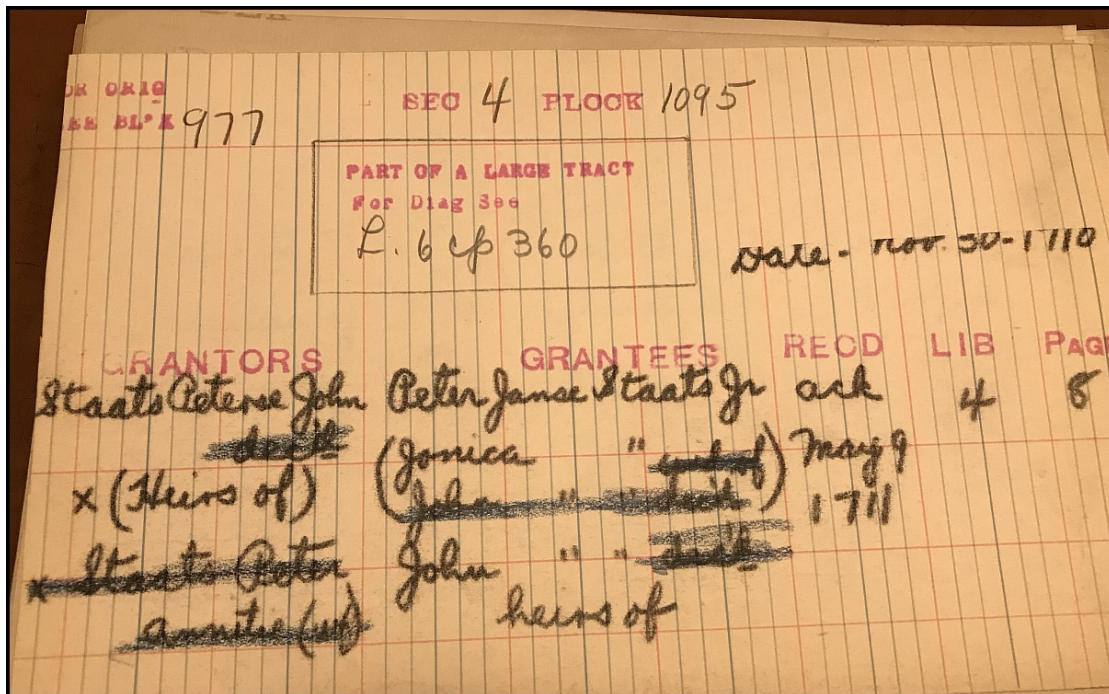 OR ORIG SEC 4 PLOCK 1095
EE BL'K 977
PART OF A LARGE TRACT
For Diag See
L. 6 cp 360
Date - Nov. 30 - 1710
GRANTORS GRANTEES RECD LIB PAG
Staats Peterse John Peter Janse Staats Jr ack 4 8
(Jonica " wf of) May 9
x (Heirs of) (John " " 1711
x Staats Peter John " "
annitie (wf) heirs of